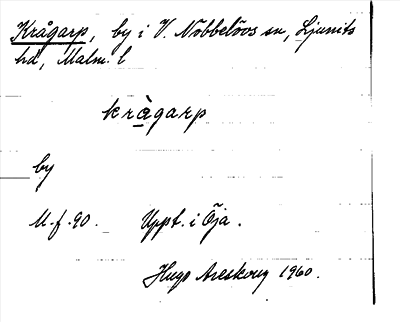 Krågarp, by i V. Nöbbelövs sn, Ljunits
hd, Malm. l
kràgarp
by
M.f.90. Uppt. i Öja.
Hugo Areskoug 1960.